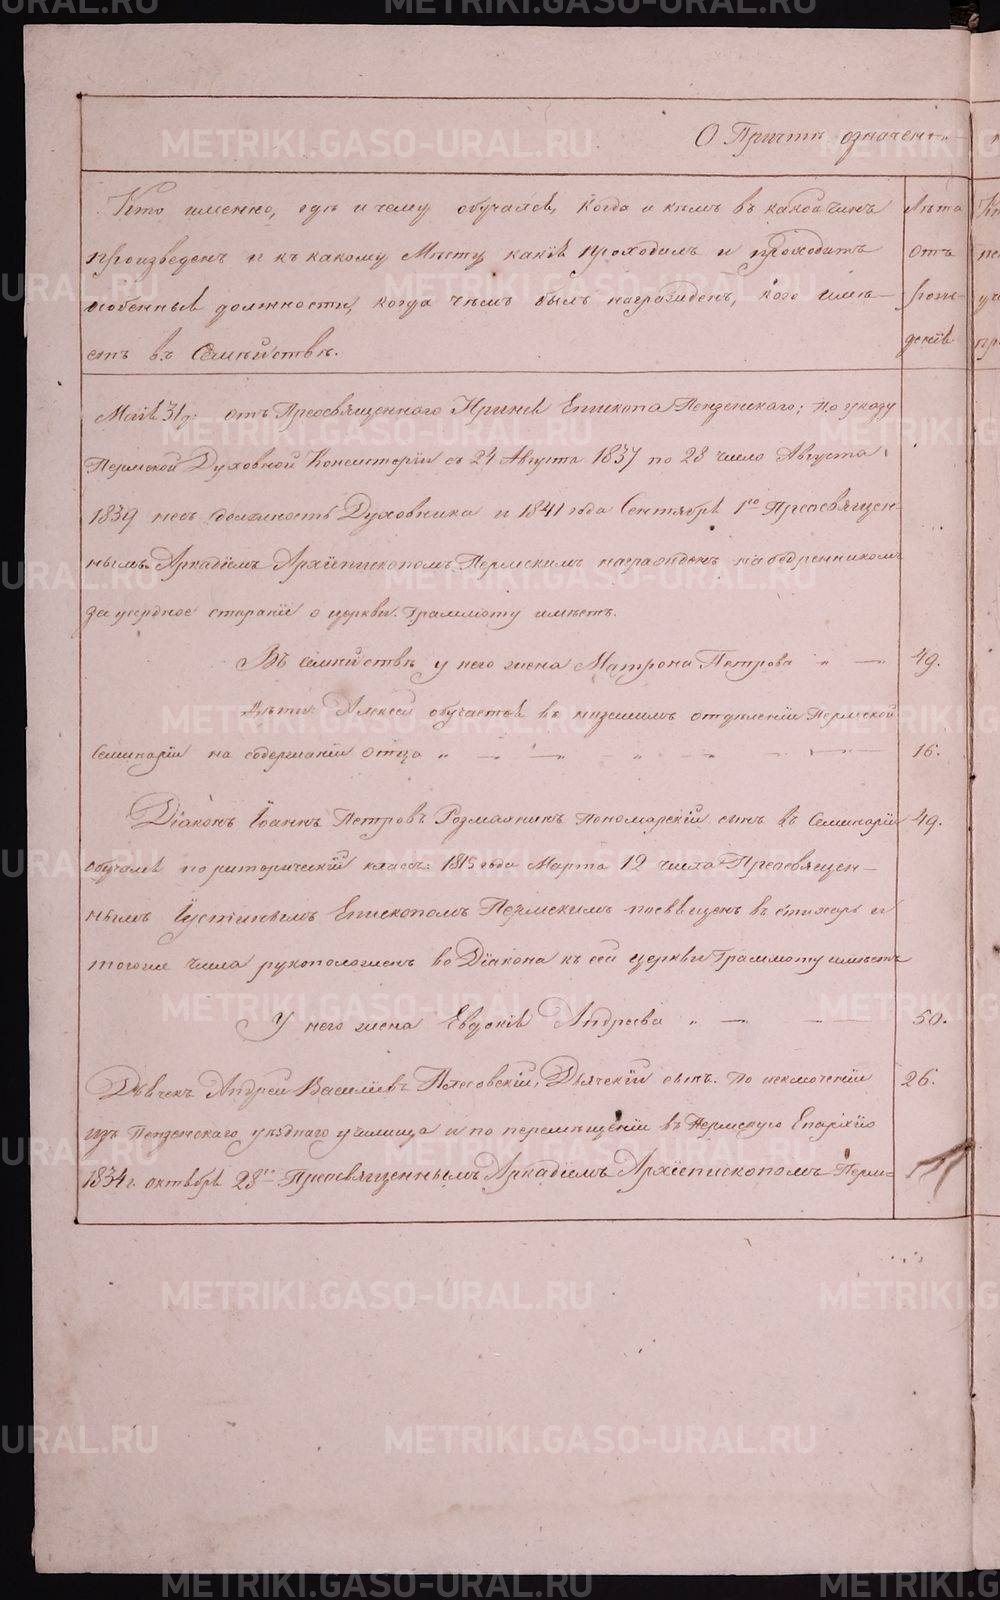 О Причтѣ означен-
Кто именно, гдѣ и чему обучался, когда и кѣмъ въ какой чинъ
произведенъ и къ какому Мѣсту какія проходилъ и проходитъ
особенныя должности, когда чѣмъ былъ награжденъ, кого имѣ-
етъ въ Семѣйствѣ.
Лѣта
отъ
рож-
денія
Маія 31 д: отъ Преосвященнаго Иринея Епископа Пензенскаго; По указу
Пермской Духовной Консисторіи съ 24 Августа 1837 по 28 число Августа
1839 несъ должность Духовника и 1841 года Сентября 1го Преосвящен-
нымъ Аркадіемъ Архіепископомъ Пермскимъ награжденъ набедренникомъ
за усердное стараніе о церкви. Граммоту имѣетъ.
Въ семѣйствѣ у него жена Матрона Петрова " — 49.
Дѣти: Алексей обучается въ низшемъ отдѣленіи Пермской
Семинаріи на содержаніи отца " — — — " — — 16.
Діаконъ Іоаннъ Петровъ Пономарскій сынъ въ Семинаріи 49.
обучался по риторическій классъ: 1815 года Марта 12 числа Преосвящен-
нымъ Іустиномъ Епископомъ Пермскимъ посвященъ въ стихарь и
тогоже числа рукоположенъ во Діакона къ сей церкви Граммоту имѣетъ
У него жена Евдокія Андреева " — — 50.
Дьячекъ Андрей Василіевъ Дьячскій сынъ. По исключеніи 26.
изъ Пензенскаго уѣзднаго училища и по перемѣщеніи въ Пермскую Епархію
1834 г. октября 28го Преосвященнымъ Аркадіемъ Архіепископомъ Перм-
METRIKI.GASO-URAL.RU